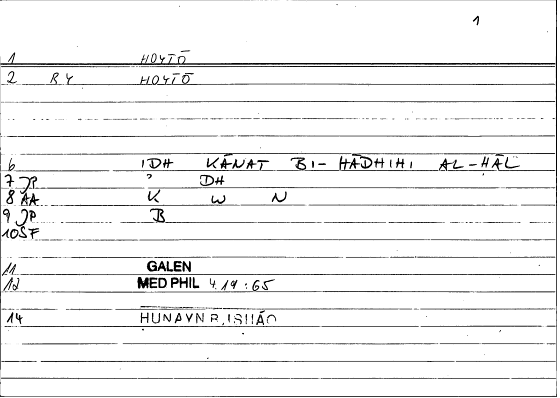 1
1 HOYTŌ
2 RY HOYTŌ
6 IDH KĀNAT BI- HĀDHIHI AL-HĀL
7 JP ʾ DH
8 AA K W N
9 JP B
10 SF
11 GALEN
12 MED PHIL 4.19:65
14 HUNAYN B. ISHĀQ